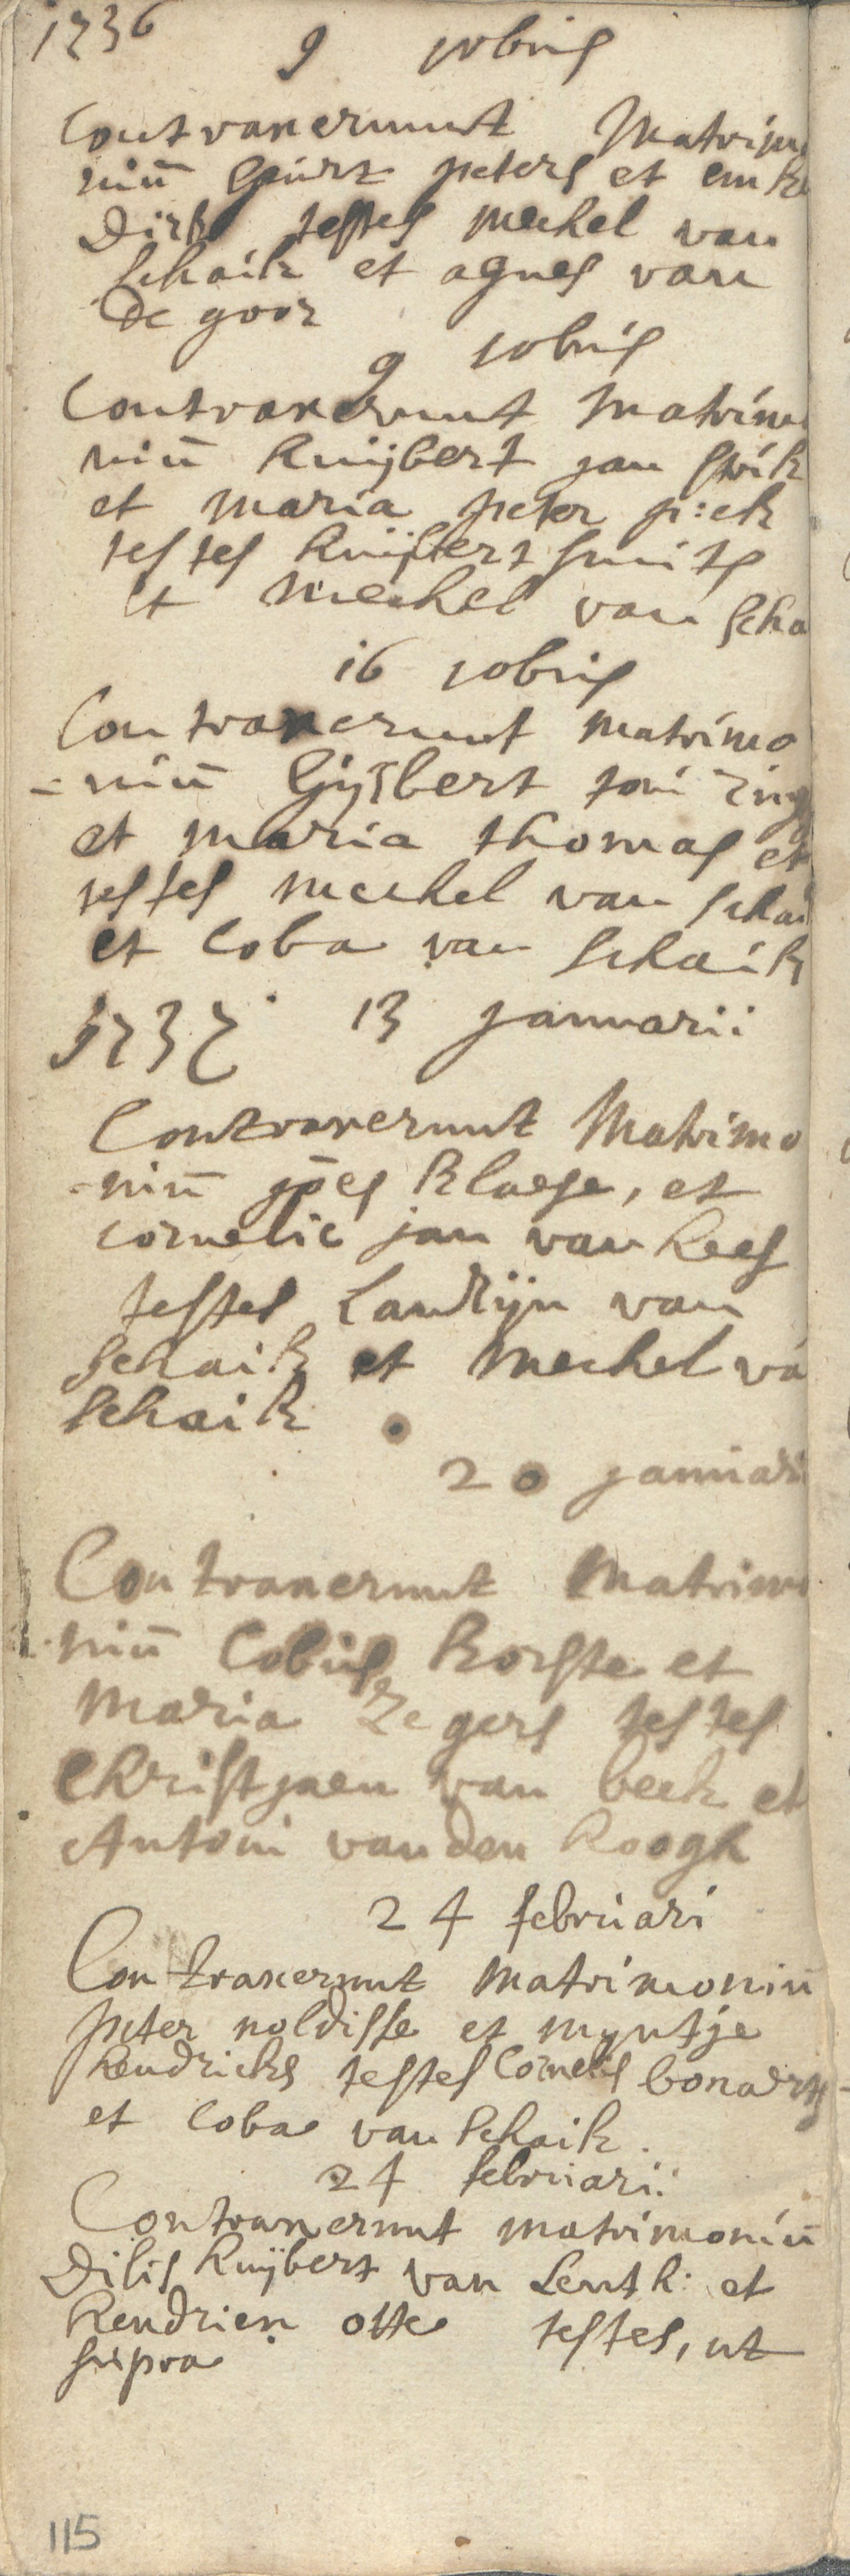 1736 9 xobris
Contraxerunt Matrim
niū Geurt peters et em
Dirk testes mechel van
schaik et agnes van
de goor
9 xobris
Contraxerunt matrim
niū Huijbert jan
et maria peter
testes Huijbert smits
et mechel van scha
16 xobris
Contraxerunt matrimo
-niū Gijsbert toni
et maria thomas et
testes mechel van schai
et Coba van schaik
1737 13 januarii
Contraxerunt Matrimo
-niū jōes klaese, et
cornelie jan van hees
testes Landrijn van
schaik et mechel va
schaik
20 januari
Contraxerunt matrim
niū Cobus korste et
maria Zegers testes
christjaen van beek et
Antoni van den hoogh
24 februari
Contraxerunt matrimoniū
peter noldisse et myntje
hendricks testes Cornelis bonaerts
et Coba van schaik.
24 februarii
Contraxerunt matrimoniū
Dilis huijbert van Lenth: et
hendrien otte testes, ut
supra
115